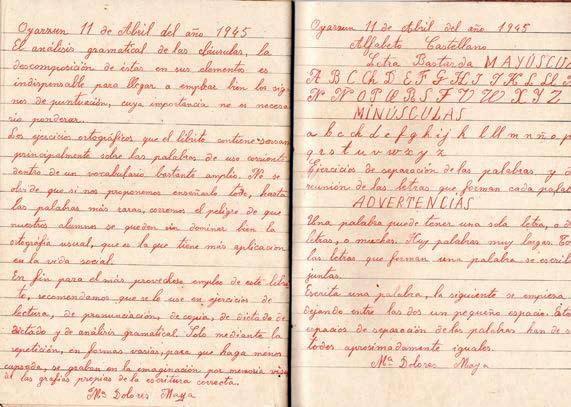 Oyarzun 11 de Abril del año 1945
El análisis gramatical de las cláusulas, la
descomposición de éstas en sus elementos es
indispensable para llegar a emplear bien los sig-
nos de puntuación, cuya importancia no es necesa-
rio ponderar.
Los ejercicios ortográficos que el librito contiene versan
principalmente sobre las palabras de uso corriente
dentro de un vocabulario bastante amplio. No se
olvide que si nos proponemos enseñarlo todo, hasta
las palabras más raras, corremos el peligro de que
nuestros alumnos se queden sin dominar bien la
ortografía usual, que es la que tiene más aplicación
en la vida social.
En fin para el más provechoso empleo de este libri-
to, recomendamos que se le use en ejercicios de
lectura, de pronunciación, de copia, de dictado de
dictado y de análisis gramatical. Solo mediante la
repetición, en formas varias, para que haga menos
se graban en la imaginación por memoria
las grafías propias de la escritura correcta.
Mª Dolores Maya
Oyarzun 11 de Abril del año 1945
Alfabeto Castellano
Letra Bastarda MAYÚSCUL
A B C Ch D E F G H I J K L Ll
N Ñ O P Q R S T U V W X Y Z
MINÚSCULAS
a b c ch d e f g h i j k l ll m n ñ o p
q r s t u v w x y z
Ejercicios de separación de las palabras y
reunión de las letras que forman cada palab
ADVERTENCIAS
Una palabra puede tener una sola letra, o d
letras, o muchas. Hay palabras muy largas. To
las letras que forman una palabra se escrib
juntas.
Escrita una palabra, la siguiente se empieza
dejando entre las dos un pequeño espacio. Esto
espacios de separación de las palabras han de s
todos aproximadamente iguales.
Mª Dolores Maya